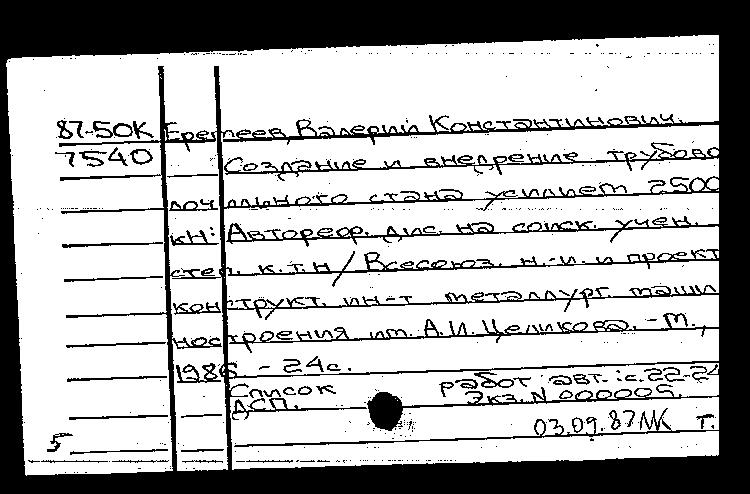 87-50К Еремеев, Валерий Константинович.
7540 Создание и внедрение трубово
лочильного стана усилием 2500
кН: Автореф. дис. на соиск. учен.
степ. к.т.н / Всесоюз. н.-и. и проект
конструкт. ин-т металлург. маши
ностроения им. А.И. Целикова. - М.,
1986 - 24с.
Список работ авт.: с. 22-24
ДСП. Экз. N 000005.
03.09.87 Т.
5